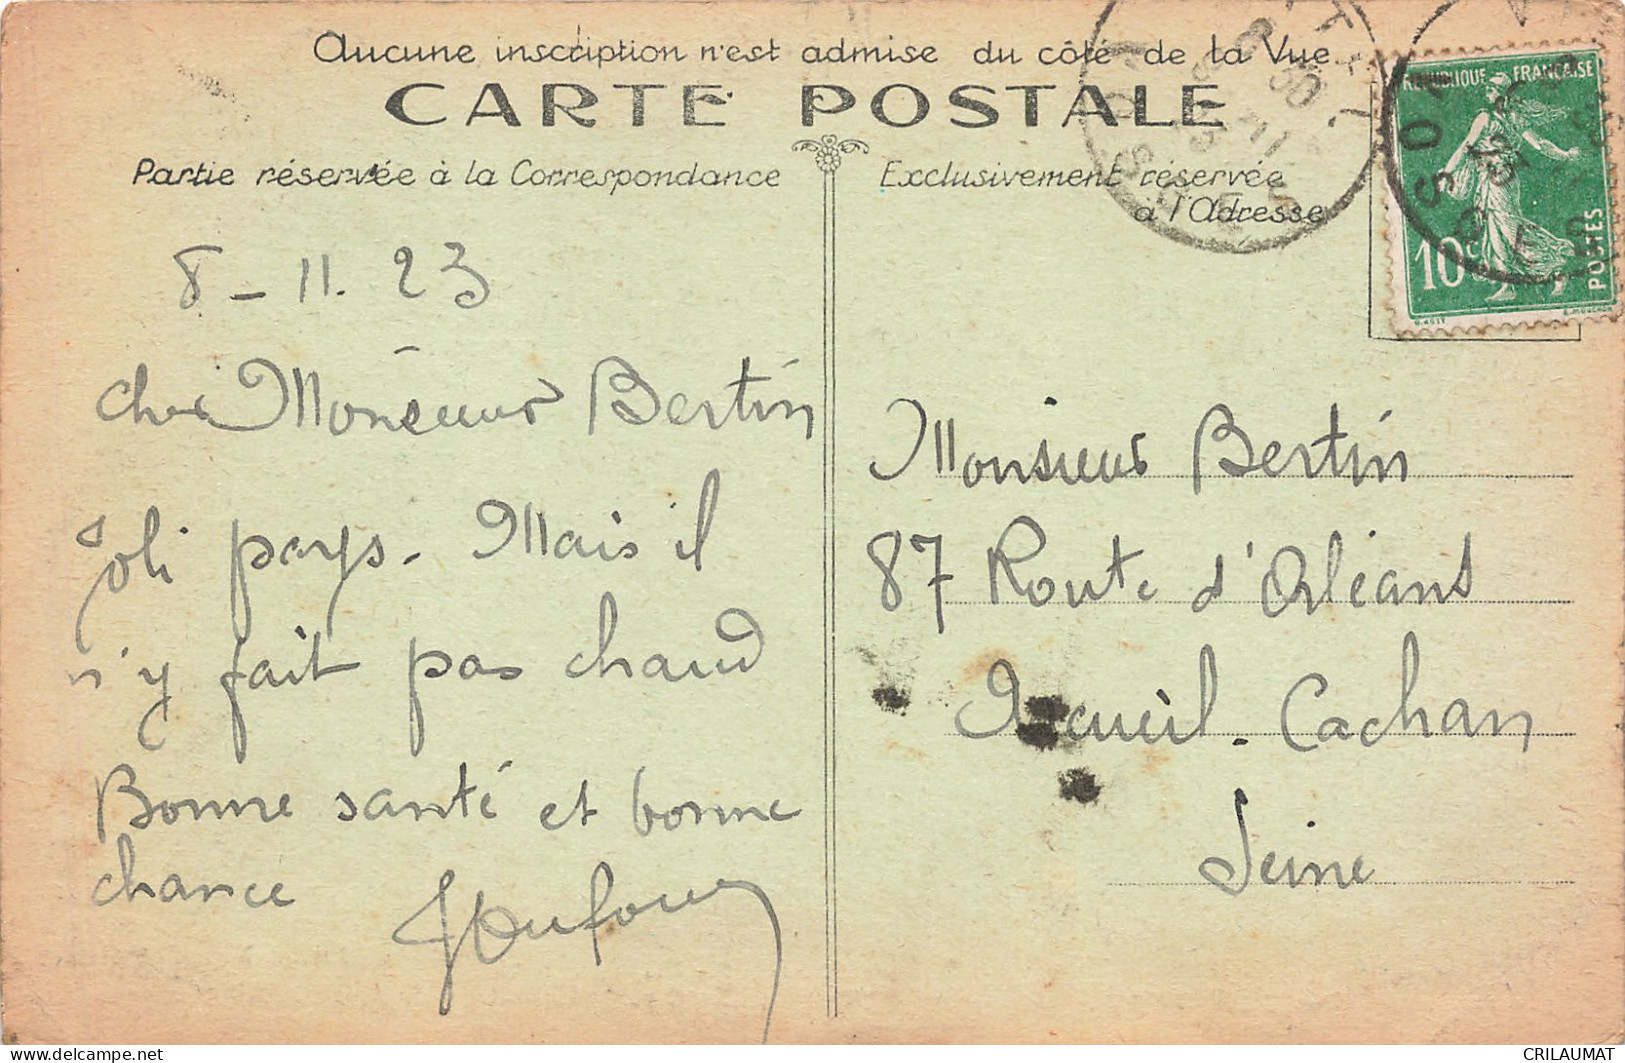 Aucune inscription n'est admise du côté de la Vue
CARTE POSTALE
Partie réservée à la Correspondance
Exclusivement réservée
à l'Adresse
REPUBLIQUE FRANÇAISE
10c
POSTES
8-11.23
cher Monsieur Bertin
Joli pays. Mais il
n'y fait pas chaud
Bonne santé et bonne
chance
JDufour
Monsieur Bertin
87 Route d'Orléans
Arcueil. Cachan
Seine
CRILAUMAT